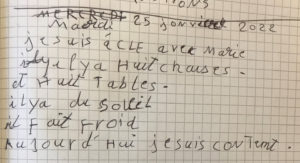 MERCREDI
Mardi 25 janvier 2022
je suis à CLE avec Marie
il y a Huit chaises.
et Huit Tables.
il ya du soleil
il Fait Froid
Aujourd'Hui je suis content.